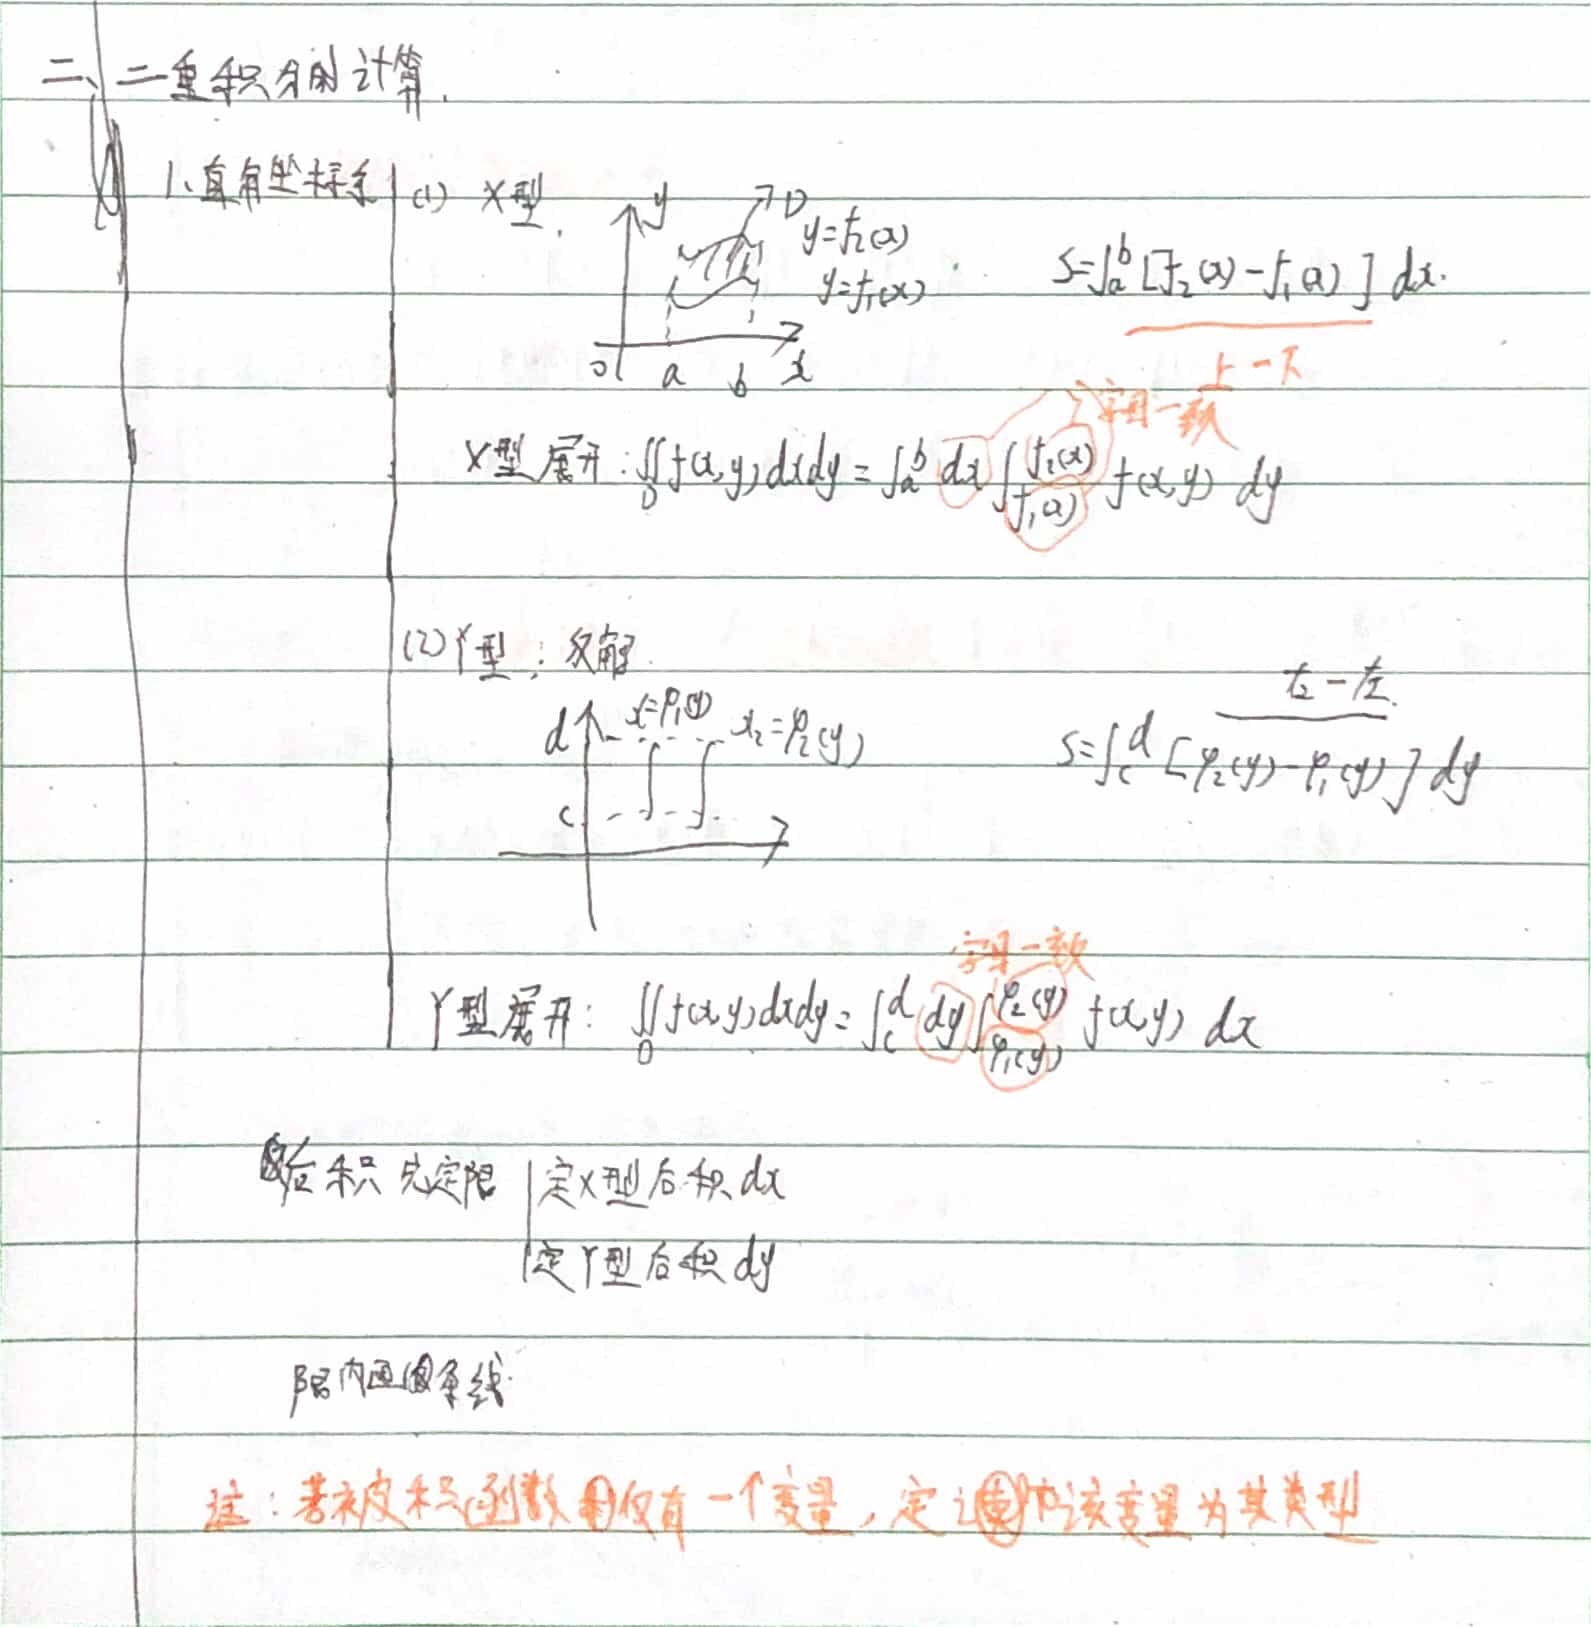 二、二重积分的计算.
1、直角坐标系
(1) X型.
y
D
y=f₂(x)
y=f₁(x)
0 a b x
S=∫ₐᵇ[f₂(x)-f₁(x)]dx.
上-下
字母一致
X型展开:∬_D f(x,y)dxdy=∫ₐᵇdx∫_{f₁(x)}^{f₂(x)} f(x,y) dy
(2)Y型:反解.
d x=φ₁(y) x₂=φ₂(y)
c
右-左
S=∫_c^d[φ₂(y)-φ₁(y)]dy
字母一致
Y型展开:∬_D f(x,y)dxdy=∫_c^d dy∫_{φ₁(y)}^{φ₂(y)} f(x,y) dx
后积先定限 定X型后积dx
定Y型后积dy
限内画条线.
注:若被积函数仅有一个变量,定该变量为其类型